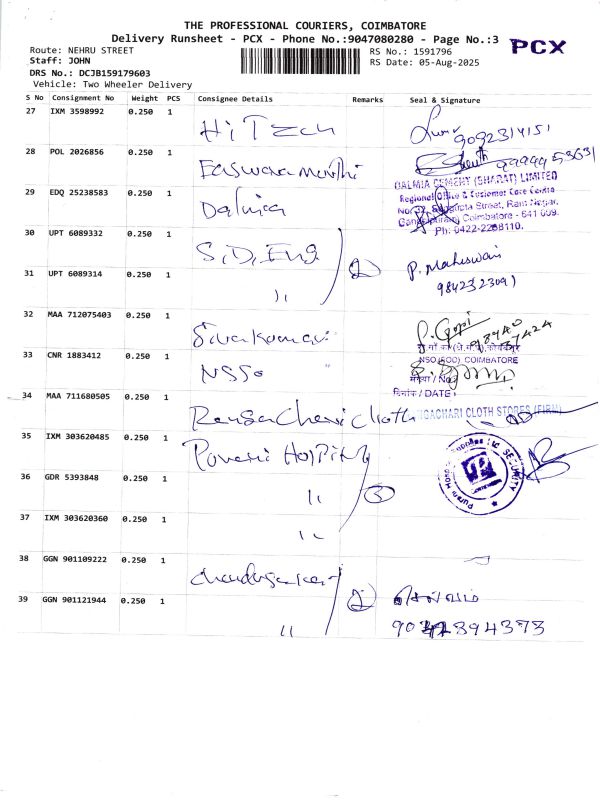 THE PROFESSIONAL COURIERS, COIMBATORE
Delivery Runsheet - PCX - Phone No.:9047080280 - Page No.:3
PCX
Route: NEHRU STREET
RS No.: 1591796
Staff: JOHN
RS Date: 05-Aug-2025
DRS No.: DCJB159179603
Vehicle: Two Wheeler Delivery
S No Consignment No Weight PCS Consignee Details Remarks Seal & Signature
27 IXM 3598992 0.250 1 Hi Tech
9092314151
28 POL 2026856 0.250 1 Easwaramoorthi
29 EDQ 25238583 0.250 1 Dalmia
DALMIA CEMENT (BHARAT) LIMITED
Regional Office & Customer Care Centre
Street, Ram Nagar,
Coimbatore - 641 009.
Ph: 0422-2238110.
30 UPT 6089332 0.250 1 S.D. Eng 2
31 UPT 6089314 0.250 1 "
P. Maheswari
9842323091
32 MAA 712075403 0.250 1 Sivakumar
P. Gopi
33 CNR 1883412 0.250 1 NSSO "
COIMBATORE
दिनांक / DATE
34 MAA 711680505 0.250 1 Cloth
CLOTH STORES (FIRM)
35 IXM 303620485 0.250 1
SECURITY
36 GDR 5393848 0.250 1 " 3
37 IXM 303620360 0.250 1 "
38 GGN 901109222 0.250 1 Chandrasekar
39 GGN 901121944 0.250 1 " 2
செல்வம்